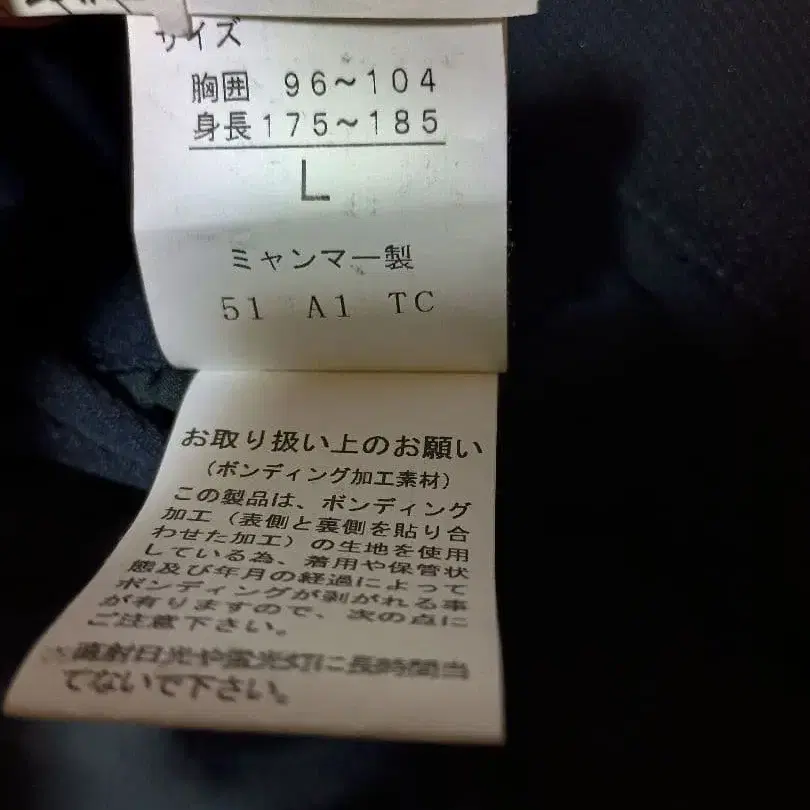 サイズ
胸囲 96~104
身長175~185
L
ミャンマー製
51 A1 TC
お取り扱い上のお願い
(ボンディング加工素材)
この製品は、ボンディング
加工(表側と裏側を貼り合
わせた加工)の生地を使用
している為、着用や保管状
態及び年月の経過によって
ボンディングが剥がれる事
が有りますので、次の点に
ご注意下さい。
直射日光や蛍光灯に長時間当
てないで下さい。